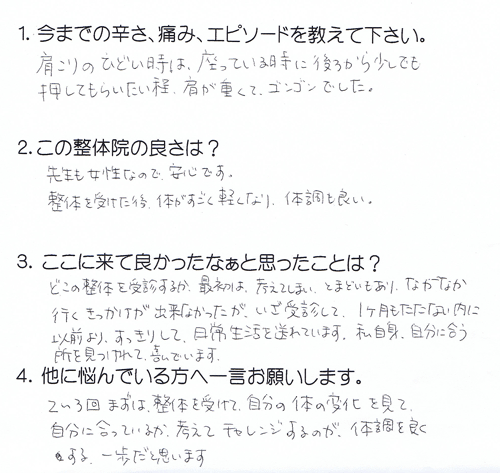 1. 今までの辛さ、痛み、エピソードを教えて下さい。
肩こりのひどい時は、座っている時に後ろから少しでも
押してもらいたい程、肩が重くて、ゴンゴンでした。
2.この整体院の良さは？
先生も女性なので、安心です。
整体を受けた後、体がすごく軽くなり、体調も良い。
3. ここに来て良かったなぁと思ったことは？
どこの整体を受診するか、最初は、考えてしまい、とまどいもあり、なかなか
行くきっかけが出来なかったが、いざ受診して、1ヶ月もたたない内に
以前より、すっきりして、日常生活を送れています。私自身、自分に合う
所を見つけれて、喜んでいます。
4. 他に悩んでいる方へ一言お願いします。
2〜3回まずは、整体を受けて、自分の体の変化を見て、
自分に合っているか、考えてチャレンジするのが、体調を良く
する、一歩だと思います